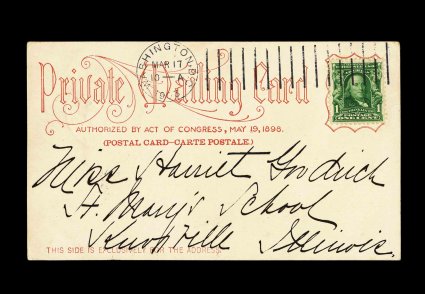 WASHINGTON, D.C.
MAR 17
10 - A
Private Mailing Card
AUTHORIZED BY ACT OF CONGRESS, MAY 19, 1898.
(POSTAL CARD—CARTE POSTALE.)
Miss Harriet Goodrich
St. Mary's School
Knoxville Illinois.
THIS SIDE IS EXCLUSIVELY FOR THE ADDRESS.